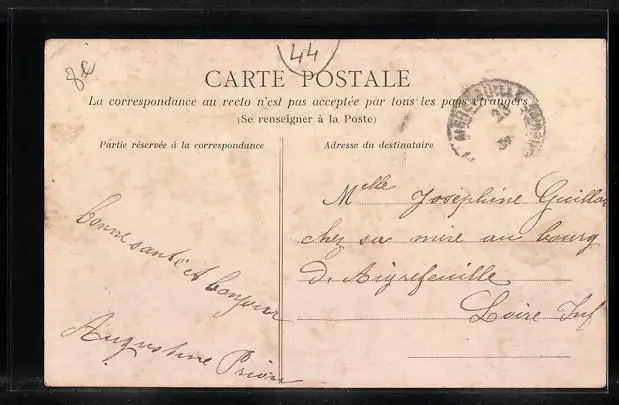 8€
44
CARTE POSTALE
La correspondance au recto n'est pas acceptée par tous les pays étrangers
(Se renseigner à la Poste)
Partie réservée à la correspondance
Adresse du destinataire
bonne santé et bonjour
Augustine Priou
Melle Joséphine Guillou
chez sa mère au bourg
D. Aigrefeuille
Loire Inf